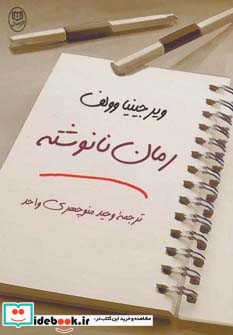 ویرجینیا وولف
رمان نانوشته
ترجمهٔ وحید منوچهری واحد
مشاهده و خرید این کتاب در:
idebook.ir